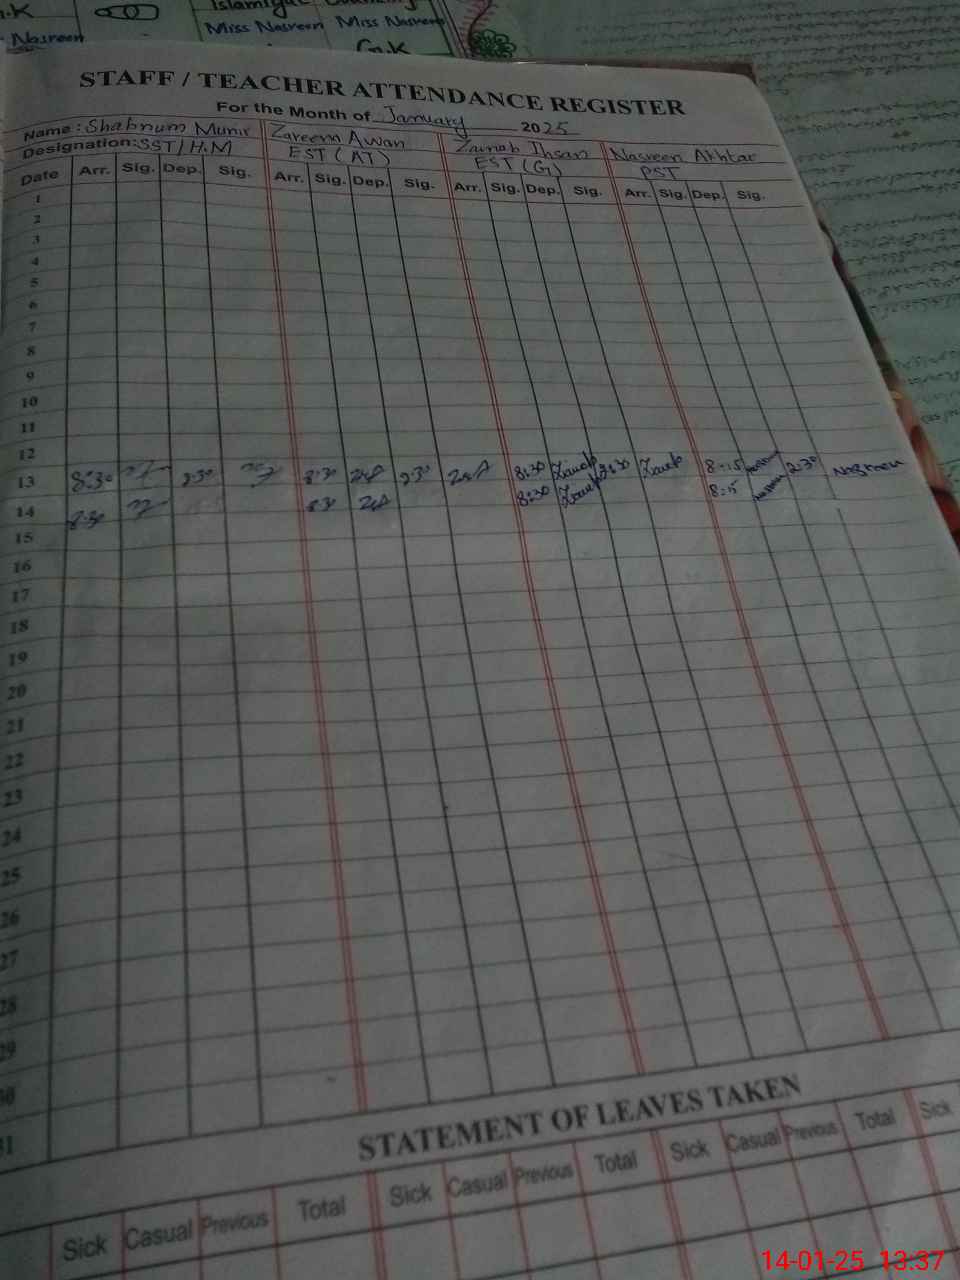 G.K Islamiyat
Nasreen Miss Nasreen Miss Nasreen
G.K
STAFF / TEACHER ATTENDANCE REGISTER
For the Month of January 2025
Name: Shabnum Munir Zareen Awan Zainab Ihsan Nasreen Akhtar
Designation: SST/H.M EST (AT) EST (G) PST
Date Arr. Sig. Dep. Sig. Arr. Sig. Dep. Sig. Arr. Sig. Dep. Sig. Arr. Sig. Dep. Sig.
1
2
3
4
5
6
7
8
9
10
11
12
13 8:30 2:30 8:30 2:30 8:30 Zainab 2:30 Zainab 8:15 Nasreen 2:30 Nasreen
14 8:30 8:30 8:30 Zainab 8:15 Nasreen
15
16
17
18
19
20
21
22
23
24
25
26
27
28
29
30
31
STATEMENT OF LEAVES TAKEN
Sick Casual Previous Total Sick Casual Previous Total Sick Casual Previous Total Sick
14-01-25 13:37